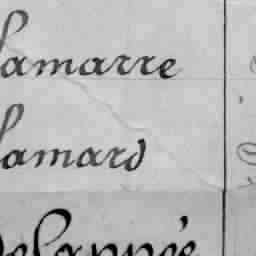 lamarre
lamard
Delappée